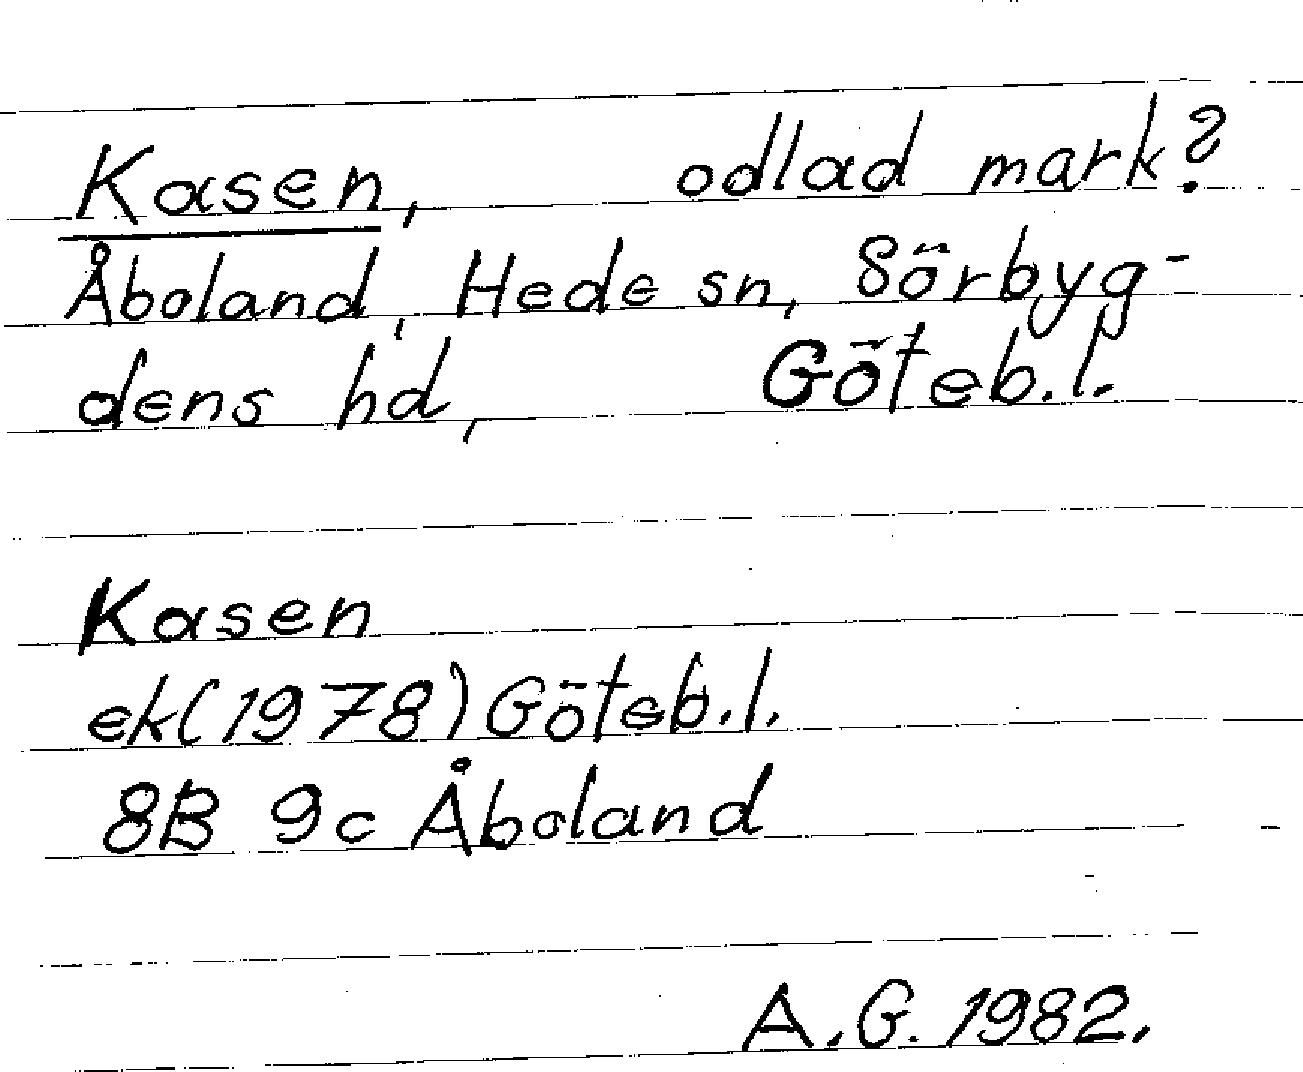 Kasen, odlad mark?
Åboland, Hede sn, Sörbyg-
dens hd, Göteb.l.
Kasen
ek(1978) Göteb.l.
8B 9c Åboland
A.G. 1982.